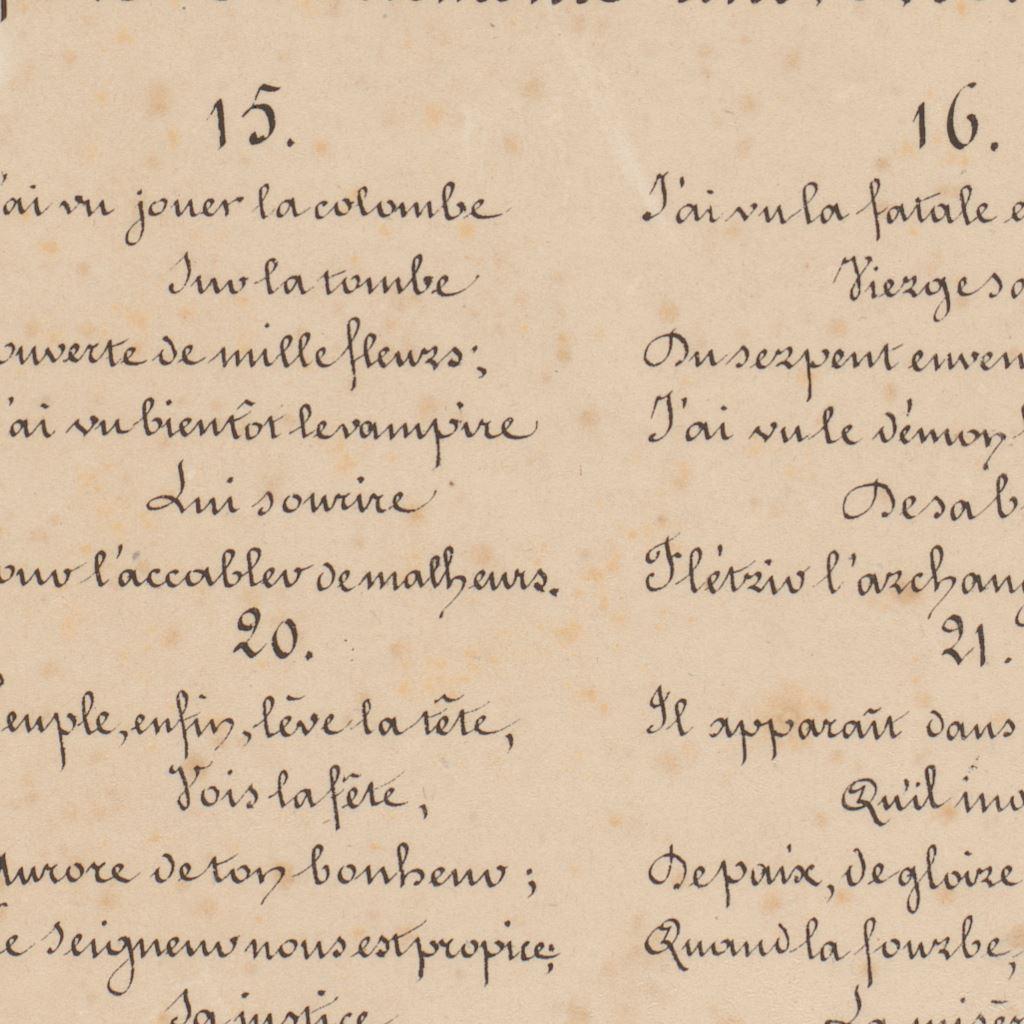 15.
J'ai vu jouer la colombe
Sur la tombe
ouverte de mille fleurs;
J'ai vu bientôt le vampire
Lui sourire
our l'accabler de malheurs.
20.
Peuple, enfin, lève la tête,
Vois la fête,
Aurore de ton bonheur;
Le Seigneur nous est propice;
Sa justice
16.
J'ai vu la fatale e
Vierge sa
Du serpent enven
J'ai vu le démon
De sa b
Flétrir l'archang
21.
Il apparaît dans
Qu'il ino
De paix, de gloire
Quand la fourbe,
La misèr